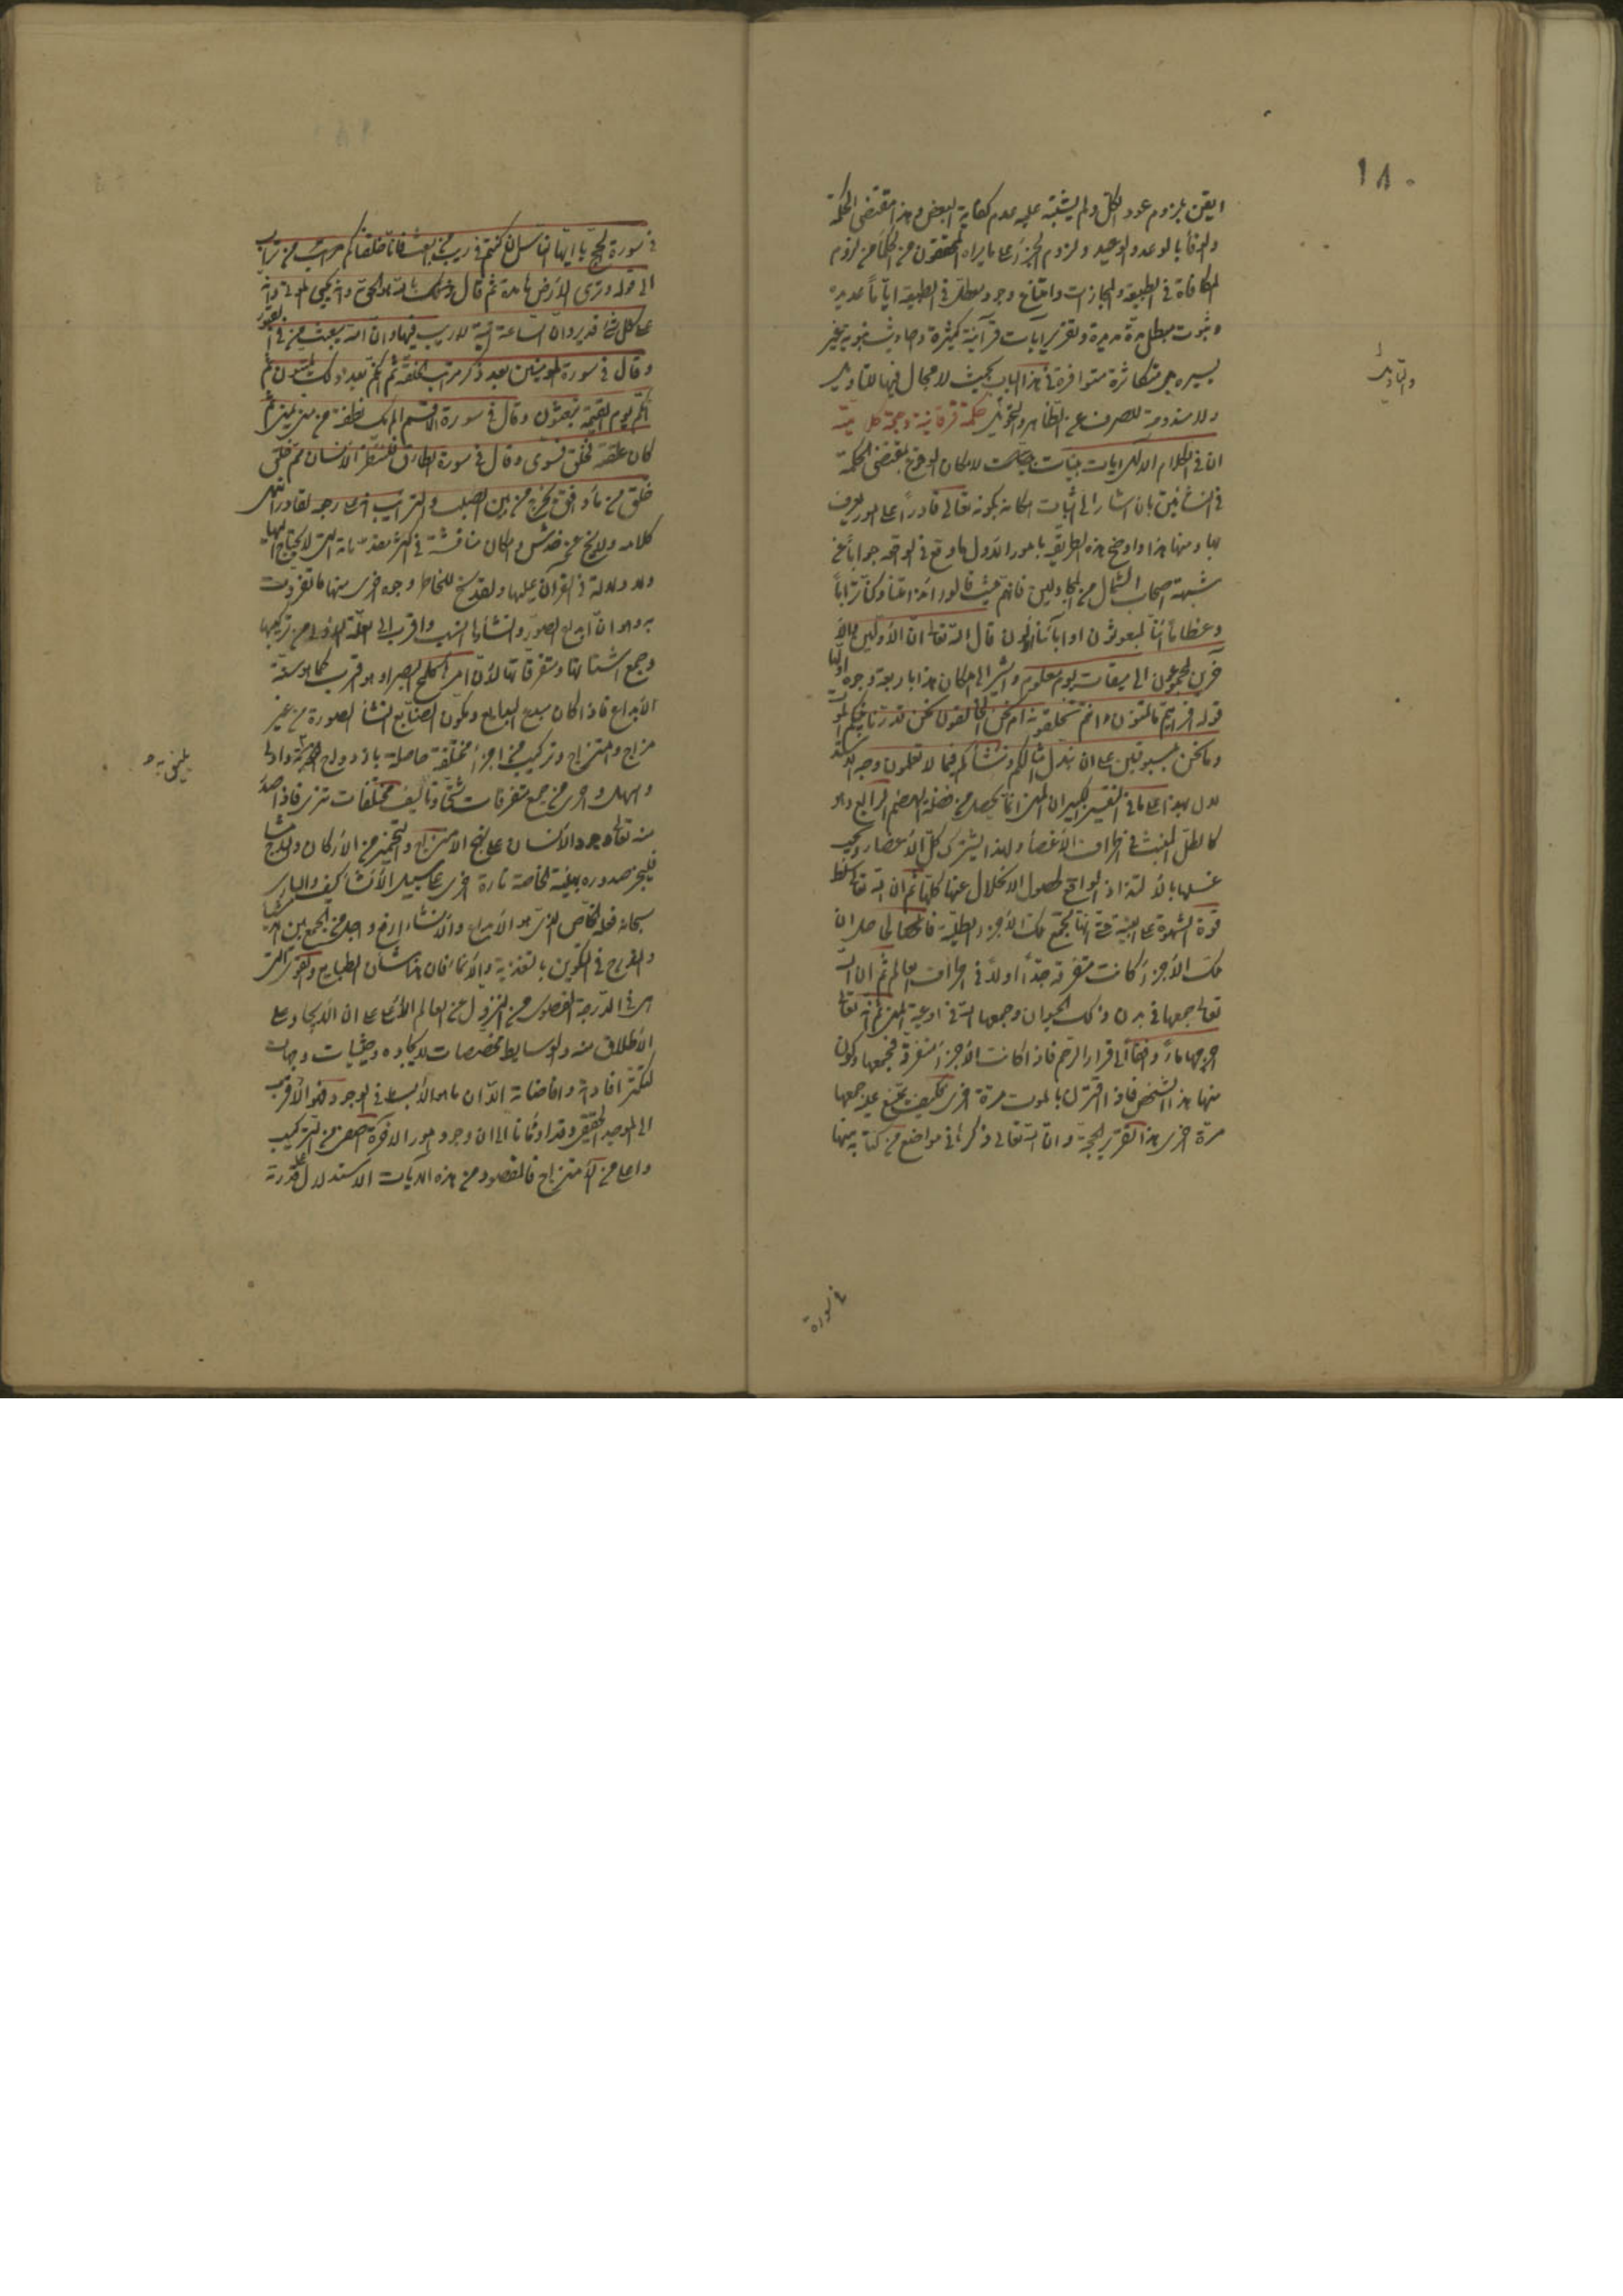 ١٨٠
ايقن بلزوم عود الكل ولم يشتبه عليه عدم كفاية البعض وهذا مقتضى الحكمة
والوفاء بالوعد والوعيد ولزوم الجزاء على ما يراه المحققون من الحكماء من لزوم
المكافاة في الطبيعة والمجازات وامتناع وجود معطل في الطبيعة اياما عديدة
وثبوت معطل مدة مديدة وتقرير آيات قرآنية كثيرة واحاديث نبوية غير
يسيرة بل متكاثرة متوافرة في هذا الباب بحيث لا مجال فيها للتاويل
والتاويل
ولا مندوحة للصرف عن الظاهر والتحويل حكمة قرآنية وحجة
ان في الكلام الالهي ايات بينات لامكان الوقوع بمقتضى الحكمة
في النشأتين بان اشار الى اثبات امكانه بكونه تعالى قادرا على امور يعرف
بها ومنها هذا واوضح هذه الطريقة بامور الاول ما وقع في الواقعة جوابا عن
شبهة اصحاب الشمال من المجادلين فانهم حيث قالوا ائذا متنا وكنا ترابا
وعظاما ائنا لمبعوثون او اباؤنا الاولون قال الله تعالى ان الاولين والا
خرين لمجموعون الى ميقات يوم معلوم واشير الى امكان هذا باربعة وجوه اولها
قوله افرايتم ما تمنون ءانتم تخلقونه ام نحن الخالقون نحن قدرنا بينكم الموت
وما نحن بمسبوقين على ان نبدل امثالكم وننشأكم فيما لا تعلمون وجه الاستد
لال بهذا على ما في التفسير الكبير ان المني انما يحصل من فضلة الهضم الرابع وهو
كالطل المنبث في اطراف الاعضاء ولهذا يشترك كل الاعضاء ويجب
غسلها بالالتذاذ الواقع لحصول الانحلال عنها كلها ثم ان الله تعالى سلط
قوة الشهوة على البنية حتى انها تجمع تلك الاجزاء الطلية فالحاصل ان
تلك الاجزاء كانت متفرقة جدا اولا في اطراف العالم ثم ان الله
تعالى جمعها في بدن ذلك الحيوان وجمعها الله في اوعية المني ثم انه تعالى
اخرجها ماء دافقا الى قرار الرحم فاذا كانت الاجزاء متفرقة فجمعها وكون
منها هذا الشخص فاذا افترق بالموت مرة اخرى فكيف يمتنع عليه جمعها
مرة اخرى هذا تقرير الحجة وان الله تعالى ذكرها في مواضع من كتابه منها
في سورة
في سورة الحج يا ايها الناس ان كنتم في ريب من البعث فانا خلقناكم من تراب
الى قوله وترى الارض هامدة ثم قال ذلك بان الله هو الحق وانه يحيي الموتى وانه
على كل شيء قدير وان الساعة اتية لا ريب فيها وان الله يبعث من في القبور
وقال في سورة المؤمنين بعد ذكر مراتب الخلقة ثم انكم بعد ذلك لميتون ثم
انكم يوم القيمة تبعثون وقال في سورة لا اقسم الم يك نطفة من مني يمنى ثم
كان علقة فخلق فسوى وقال في سورة الطارق فلينظر الانسان مم خلق
خلق من ماء دافق يخرج من بين الصلب والترائب انه على رجعه لقادر انتهى
كلامه ولا يخ عن خدش وامكان مناقشة في اكثر مقدماته التي لا يحتاج اليها
ولا دلالة في القرآن عليها ولقد سنح للخاطر وجوه اخرى منها ما تفردت
به وهو ان ابداع الصور وانشاءها انسب واقرب الى العلة الاولى من تركيبها
وجمع اشتاتها ومتفرقاتها لان امره كلمح البصر او هو اقرب كما هو سنة
الابداع فاذا كان مبدع البدايع ومكون الصنايع انشأ الصورة من غير
مزاج وامتزاج وتركيب من اجزاء مختلفة حاصلة بازدواج فهو اولى
واسهل واحرى من جمع متفرقات شتى وتأليف مختلفات تترى فاذا صد
منه تعالى وجود الانسان على نهج الامتزاج والتخمير من الاركان والامشاج
فليجز صدوره بهيئته الخاصة تارة اخرى على سبيل الانشاء كيف والباري
سبحانه فعله الخاص الذي هو الابداع والانشاء ارفع واجل من الجمع بين الاشياء
والمزاج في التكوين بالتغذية والانماء فان هذا شأن الطبايع والقوى التي
هي في الدرجة القصوى من النزول من العالم الاعلى على ان الايجاد على
الاطلاق منه والوسايط مخصصات لايجاده وحيثيات وجهات
لتكثر افادته وافاضاته الا ان ما هو الابسط في الوجود فهو الاقرب
الى الموجد الحقيقي وقد اومأنا الى ان وجود امور الاخرة اصفى من التركيب
واعلى من الامتزاج فالمقصود من هذه الايات الاستدلال على قدرة